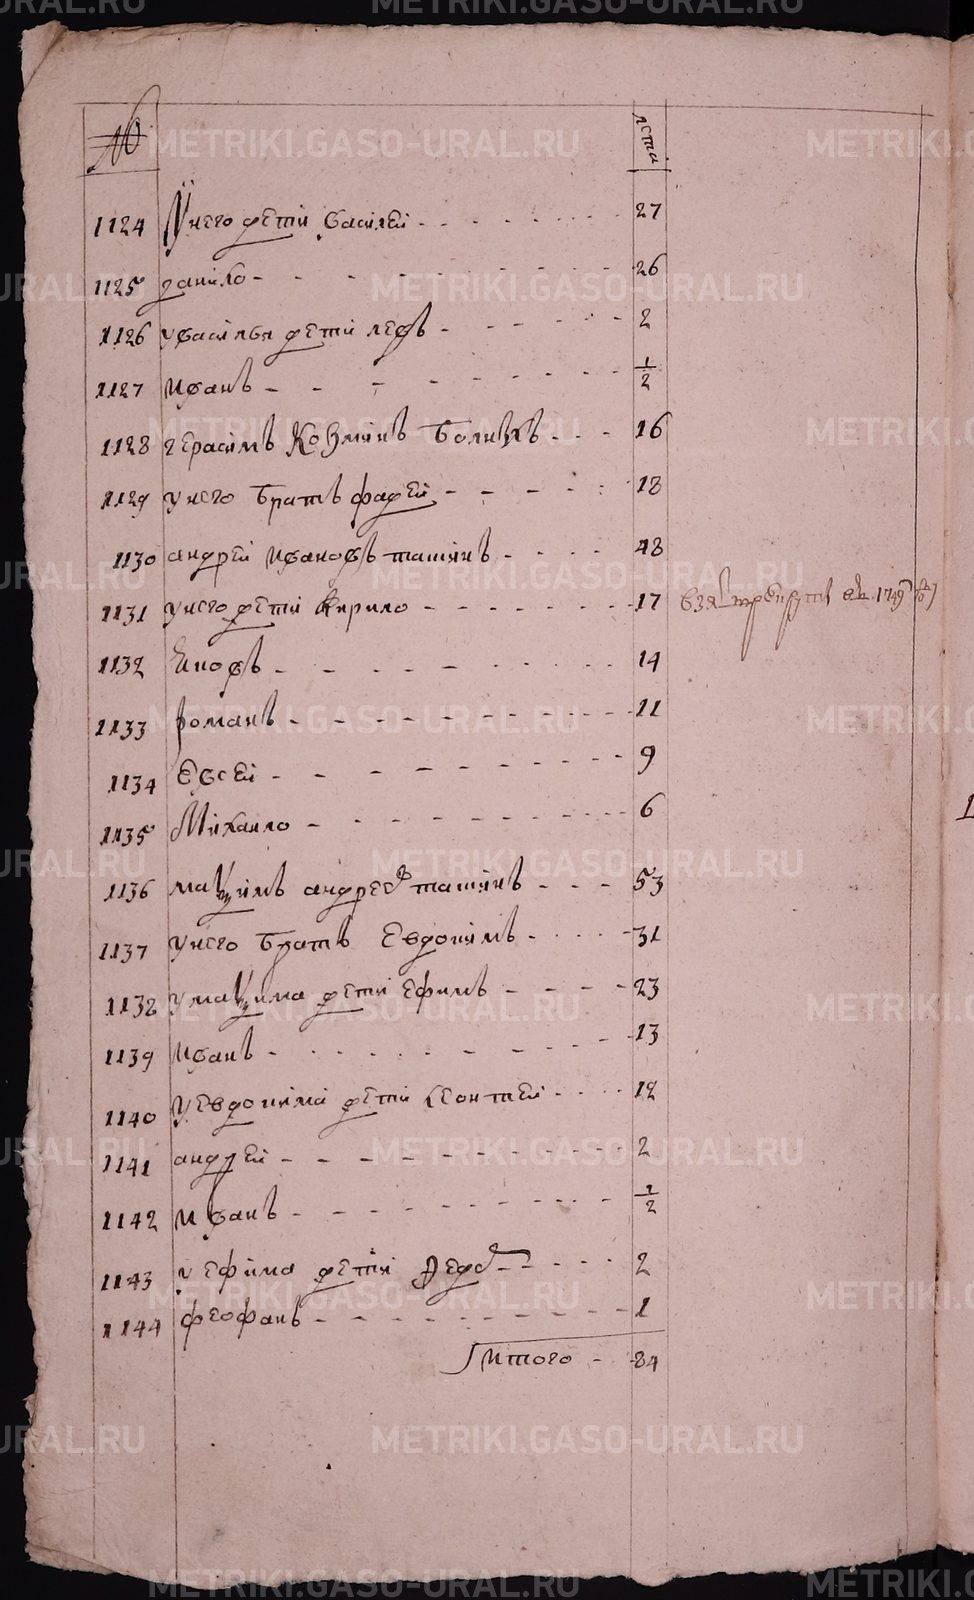 № лета
1124 У него дети Василей 27
1125 данило 26
1126 у василья дети лефъ 2
1127 Иванъ 1/2
1128 герасимъ Козминъ 16
1129 у него братъ фадей 18
1130 андрей Ивановъ ташкинъ 48
1131 у него дети Кирило 17 взят в рекруты в 1749 году
1132 Иновъ 14
1133 романъ 11
1134 Евсей 9
1135 Михаило 6
1136 максимъ андреевъ ташкинъ 53
1137 у него братъ Евдокимъ 31
1138 у максима дети Ефимъ 23
1139 Иванъ 13
1140 у Евдокима дети Леонтей 12
1141 андрей 2
1142 Иванъ 1/2
1143 у Ефима дети 2
1144 феофанъ 1
Итого 84